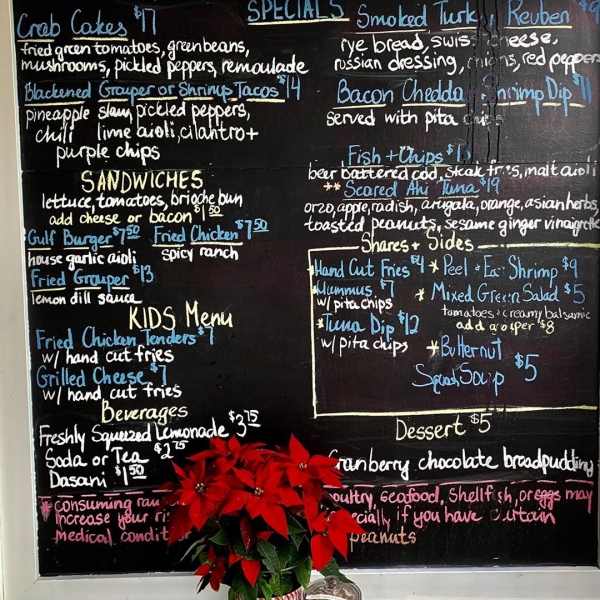 SPECIALS
Crab Cakes $17
fried green tomatoes, green beans,
mushrooms, pickled peppers, remoulade
Blackened Grouper or Shrimp Tacos $14
pineapple slaw, pickled peppers,
chili lime aioli, cilantro +
purple chips
SANDWICHES
lettuce, tomatoes, brioche bun
add cheese or bacon $1.50
Gulf Burger $7.50 Fried Chicken $7.50
house garlic aioli spicy ranch
Fried Grouper $13
lemon dill sauce
KIDS Menu
Fried Chicken Tenders $7
w/ hand cut fries
Grilled Cheese $7
w/ hand cut fries
Beverages
Freshly Squeezed Lemonade $3.75
Soda or Tea $2.75
Dasani $1.50
Smoked Turkey Reuben $9
rye bread, swiss cheese,
russian dressing, onions, red peppers
Bacon Chedda Shrimp Dip $11
served with pita chips
Fish + Chips
beer battered cod, steak fries, malt aioli
** Seared Ahi Tuna $19
orzo, apple, radish, arugala, orange, asian herbs,
toasted peanuts, sesame ginger vinaigrette
Shares + Sides
Hand Cut Fries $4
Hummus $7
w/ pita chips
*Tuna Dip $12
w/ pita chips
* Peel + Eat Shrimp $9
* Mixed Green Salad $5
tomatoes + creamy balsamic
add grouper $8
*Butternut
Squash Soup $5
Dessert $5
Cranberry chocolate breadpudding
* consuming raw poultry, seafood, shellfish, or eggs may
increase your especially if you have certain
medical
peanuts